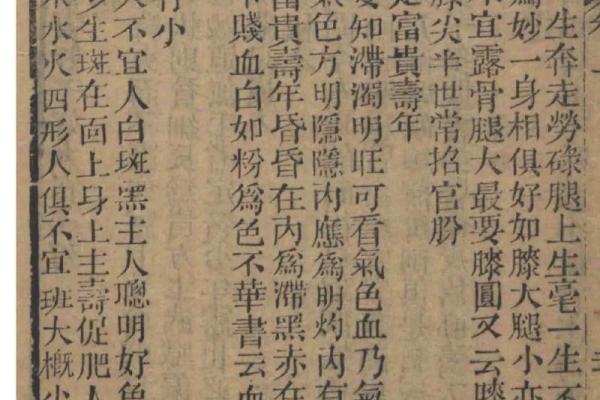 生奔走勞碌腿上生毫一生不
爲妙一身相俱好如膝大腿小亦
不宜露骨腿大最要膝圓又云膝
膝尖半世常招官
定富貴壽年
要知滯濁明旺可看氣色血乃氣
氣色方明隱隱內應爲明灼內有
富貴壽年昏昏在內爲滯黑赤在
下賤血白如粉爲色不華書云血
小
大不宜人白斑黑主人聰明好色
生斑在面上身上主壽促肥人
水火四形人俱不宜班大概少